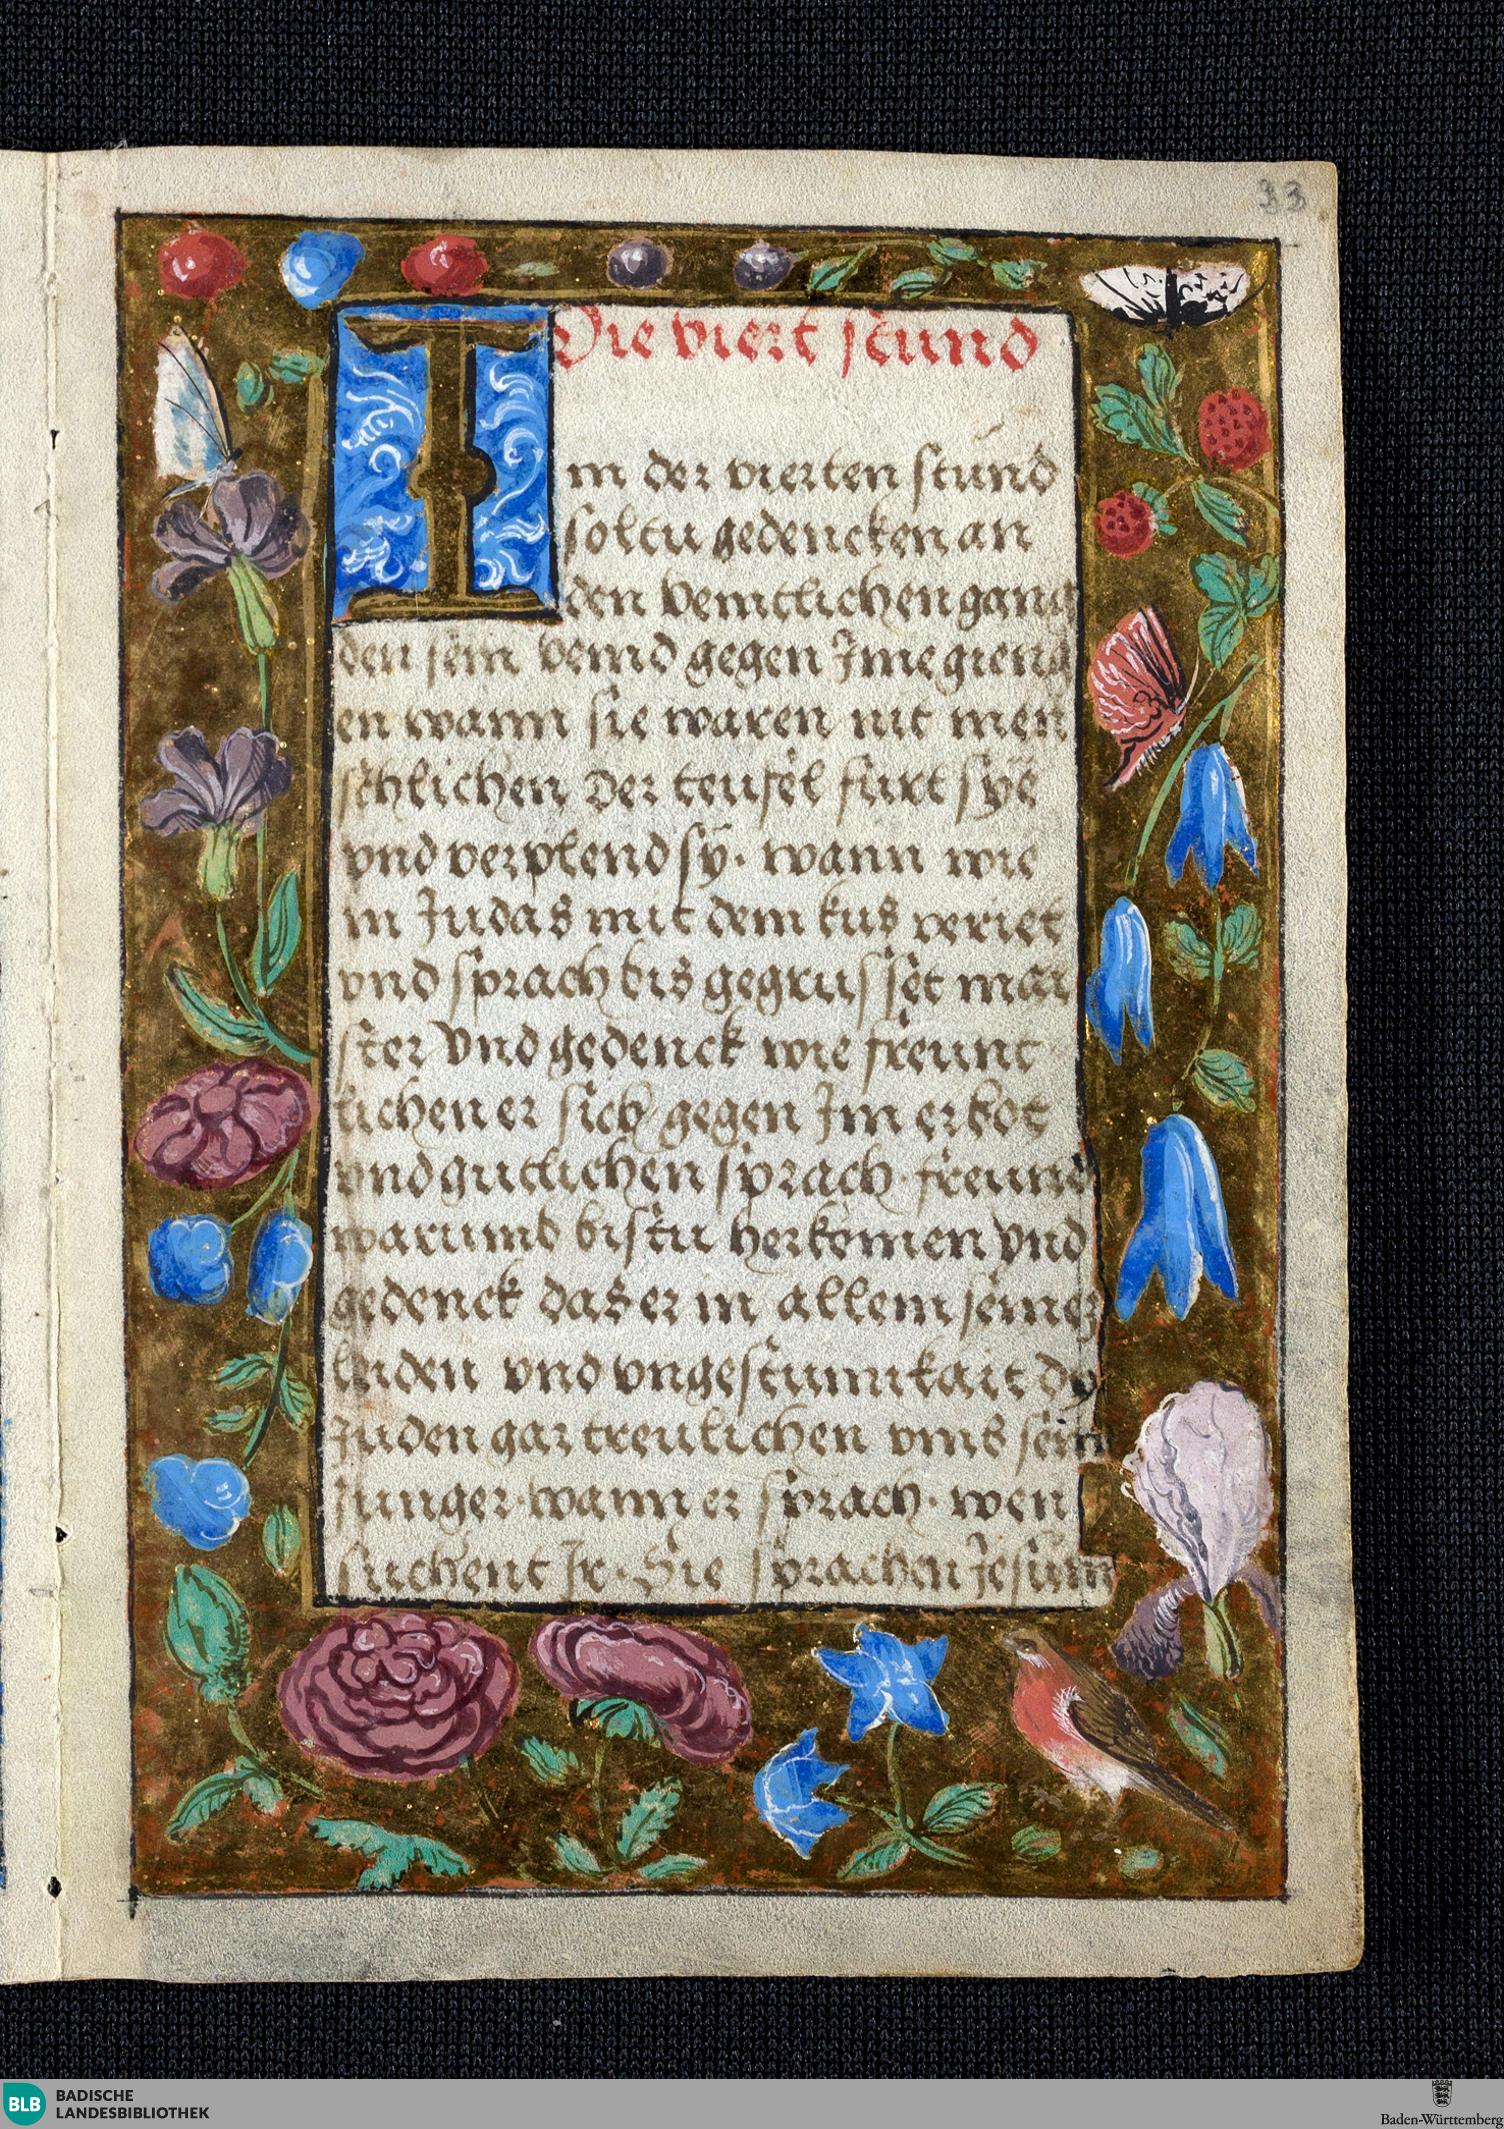 33
Die viert stund
I
m der vierten stund
soltu gedencken an
den veintlichen gang
den sein veind gegen Jme gieng
en wann sie waren nit men
schlichen der teufel furt sye
vnd verplend sÿ· wann wie
in Judas mit dem kus verriet
vnd sprach bis gegrusset mai
ster Vnd gedenck wie freunt
lichen er sich gegen Jm erbot
vnd gutlichen sprach· freund
warumb bistu herkomen Vnd
gedenck das er in allem seinez
leiden vnd vngestumikait dy
Juden gar treulichen vmb sein
Junger· wann er sprach· wen
suchent Jr· Sie sprachen Jesum
BLB
BADISCHE
LANDESBIBLIOTHEK
Baden-Württemberg